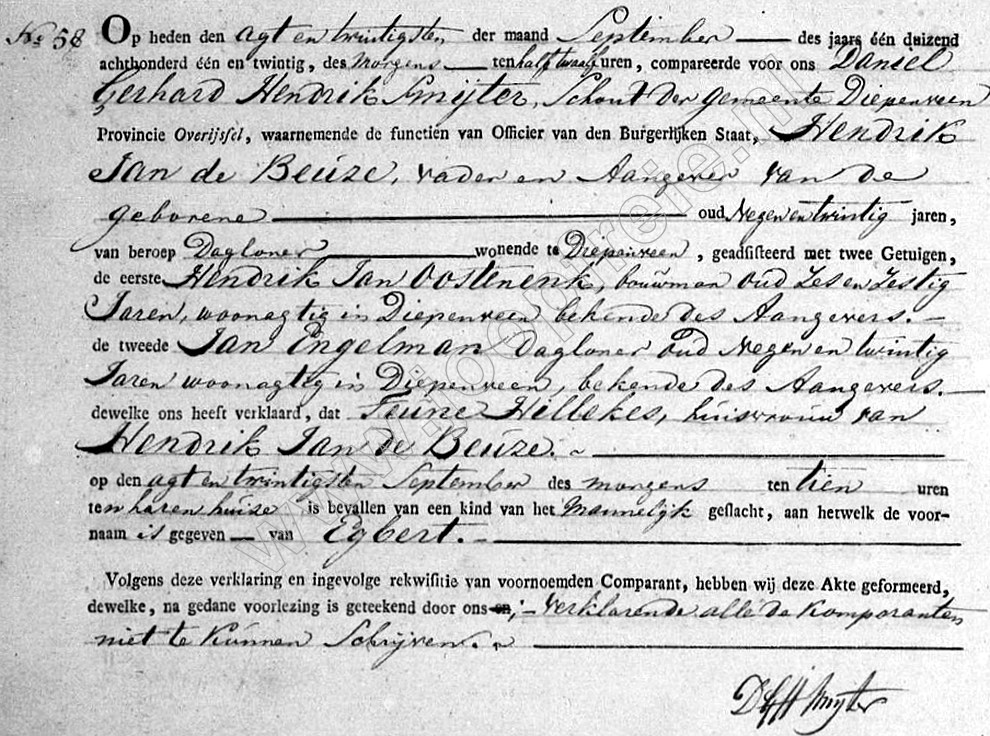 No 58 Op heden den agt en twintigsten der maand September des jaars één duizend
achthonderd één en twintig, des morgens ten half twaalf uren, compareerde voor ons Daniel
Gerhard Hendrik Smijter, Schout der gemeente Diepenveen
Provincie Overijssel, waarnemende de functiën van Officier van den Burgerlijken Staat, Hendrik
Jan de Beuze, vader en Aangever van de
geborene oud Negen en twintig jaren,
van beroep Dagloner wonende te Diepenveen, geadsisteerd met twee Getuigen,
de eerste Hendrik Jan Oostenenk, bouwman oud Zes en Zestig
Jaren, woonagtig in Diepenveen bekende des Aangevers.
de tweede Jan Engelman Dagloner Oud Negen en twintig
Jaren woonagtig in Diepenveen, bekende des Aangevers.
dewelke ons heeft verklaard, dat Teune Hillekes, huisvrouw van
Hendrik Jan de Beuze.
op den agt en twintigsten September des morgens ten tien uren
ten haren huize is bevallen van een kind van het Mannelijk geslacht, aan hetwelk de voor-
naam is gegeven van Egbert.
Volgens deze verklaring en ingevolge rekwisitie van voornoemden Comparant, hebben wij deze Akte geformeerd,
dewelke, na gedane voorlezing is geteekend door ons en, verklarende alle de Komparanten
niet te kunnen Schrijven.
DGH Smijter
www.vanoeptreffe.nl